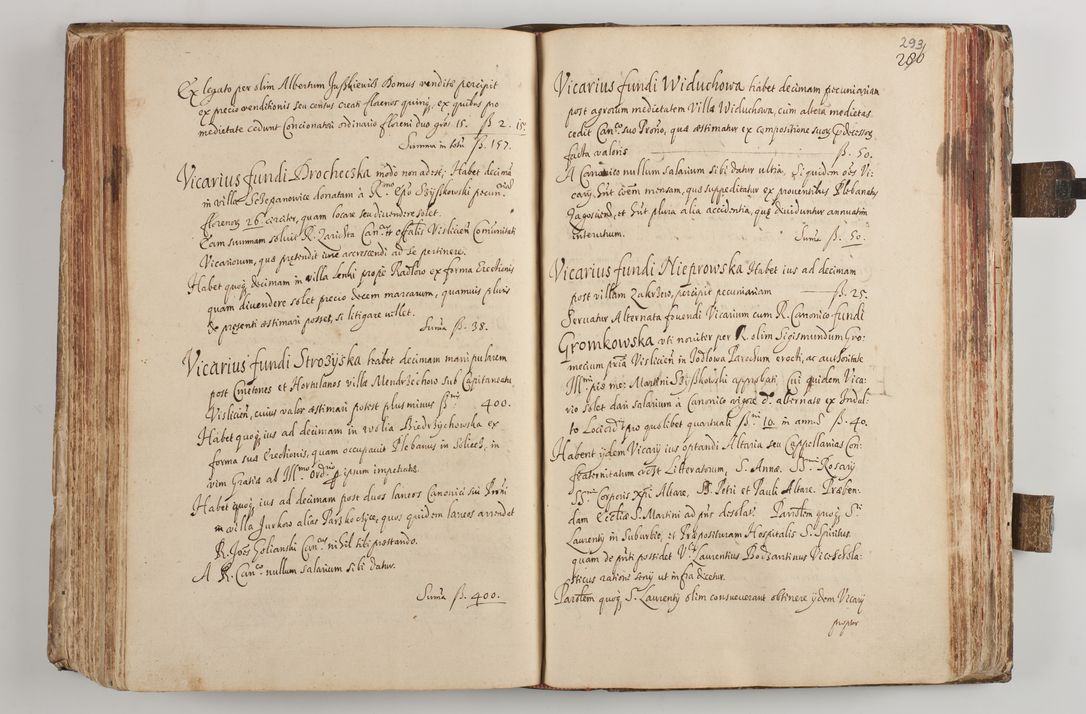 Ex legato per olim Albertum Jaßkiewicz Domus venditę percipit
ex precio venditionis seu census creati florenos quinqȝ, ex quibus pro
medietate cedunt Concionatori ordinario floreni duo gros 15. ß 2. 15.
Summa in toto ß. 157.
Vicarius fundi Drochecska modo non adest, Habet decimã
in villa Sczepanowice donatam à R.mo Epõ Szyßkowski pecun.
florenor 26 circiter, quam locare seu divendere solet.
Eam summam soluit R. Zarichta Can.cus et offalis Visliceñ Comunitati
Vicariorum, quę prętendit iure accrescendi ad se pertinere.
Habet quoqȝ decimam in villa Lenki propè Radłow ex forma Erectionis
quam divendere solet precio decem marcarum, quamuis pluris
de pręsenti ęstimari posset, si litigare vellet.
Suma ß. 38.
Vicarius fundi Strożyska habet decimam manipularem
post Cmetones et Hortulanos villę Mendrzechow sub Capitaneatu
Visliceñ, cuius valor ęstimari potest plus minus ß 400.
Habet quoqȝ ius ad decimam in wolia Biedrzychowska ex
forma suę Erectionis, quam occupauit Plebanus in Soliecz, in
vim Gratię ab Ill.mo Ord.rio p ipsum impetratę.
Habet quoqȝ ius ad decimam post duos laneos Canonici sui Proñi
in villa Jurkow alias Parskochyce, quos quidem laneos arrendet
R. Joẽs Golianski Can.cus nihil sibi prestando.
A R. Can.co nullum salarium sibi datur.
Suma ß. 400.
293
286
Vicarius fundi Widuchowa habet decimam pecuniariam
post agrorum medietatem Villę Widuchowa, cũm altera medietas
cedit Can.co suo Proño, quę ęstimatur ex compositione suor prędecessor
facta valoris ß. 50.
A Canonico nullum salarium sibi datur ultra, siquidem oẽs Vi-
carij hñt cõem mensam, quę suppeditatur ex prouentibus Plebanatꝰ
Jagoscieñ, et hñt plura alia accidentia, quę diuiduntur annuatim
interutrum. Suma ß. 50.
Vicarius fundi Nieprowska Habet ius ad decimam
post villam Zakrzow, percipit pecuniariam ß. 25.
Seruatur Alternata fouendi Vicarium cum R. Canonico fundi
Gromkowska vti nouiter per R. olim Sigismundum Gro-
mecium pria Visliceñ in Jodlowa Parochum erecti, ac autoritate
Ill.mi pię me: Martini Szyßkowski approbati. Cui quidem Vica-
rio solet dari salarium à Canonico vigore dc.tę alternatę ex Indul-
to Loci pro quolibet quartuali ß. 10. in anno ß. 40.
Habent ijdem Vicarij ius optandi Altaria seu Cappellanias Con-
fraternitatum Litteratorum, S. Annę. SS.mi Rosarij
SS.mi Corporis Xpi Altare, S. Petri et Pauli Altare. Pręben-
dam Ecclię S. Martini ad pñs desolatę. Parolem quoqȝ S.ti
Laurentij in Suburbio, et Pręposituram Hospitalis S. Spiritus.
quam de pñti possidet V. Laurentius Bodzantinus Vicescola-
sticus ratione senij ut infrà dicetur.
Parolem quoqȝ S. Laurentij olim consueuerant obtinere ijdem Vicarij
propter